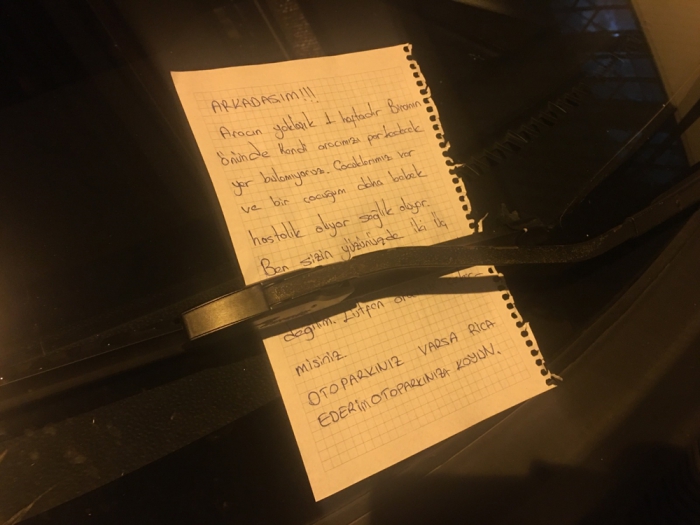 ARKADAŞIM!!!
Aracın yaklaşık 1 haftadır Binanın
önünde Kendi aracımıza park edecek
yer bulamıyoruz. Çocuklarımız var
ve bir çocuğum daha bebek
hastalık oluyor sağlık oluyor.
Ben sizin yüzünüzde iki üç
değilim. Lütfen
misiniz
OTOPARKINIZ VARSA RİCA
EDERİM OTOPARKINIZA KOYUN.